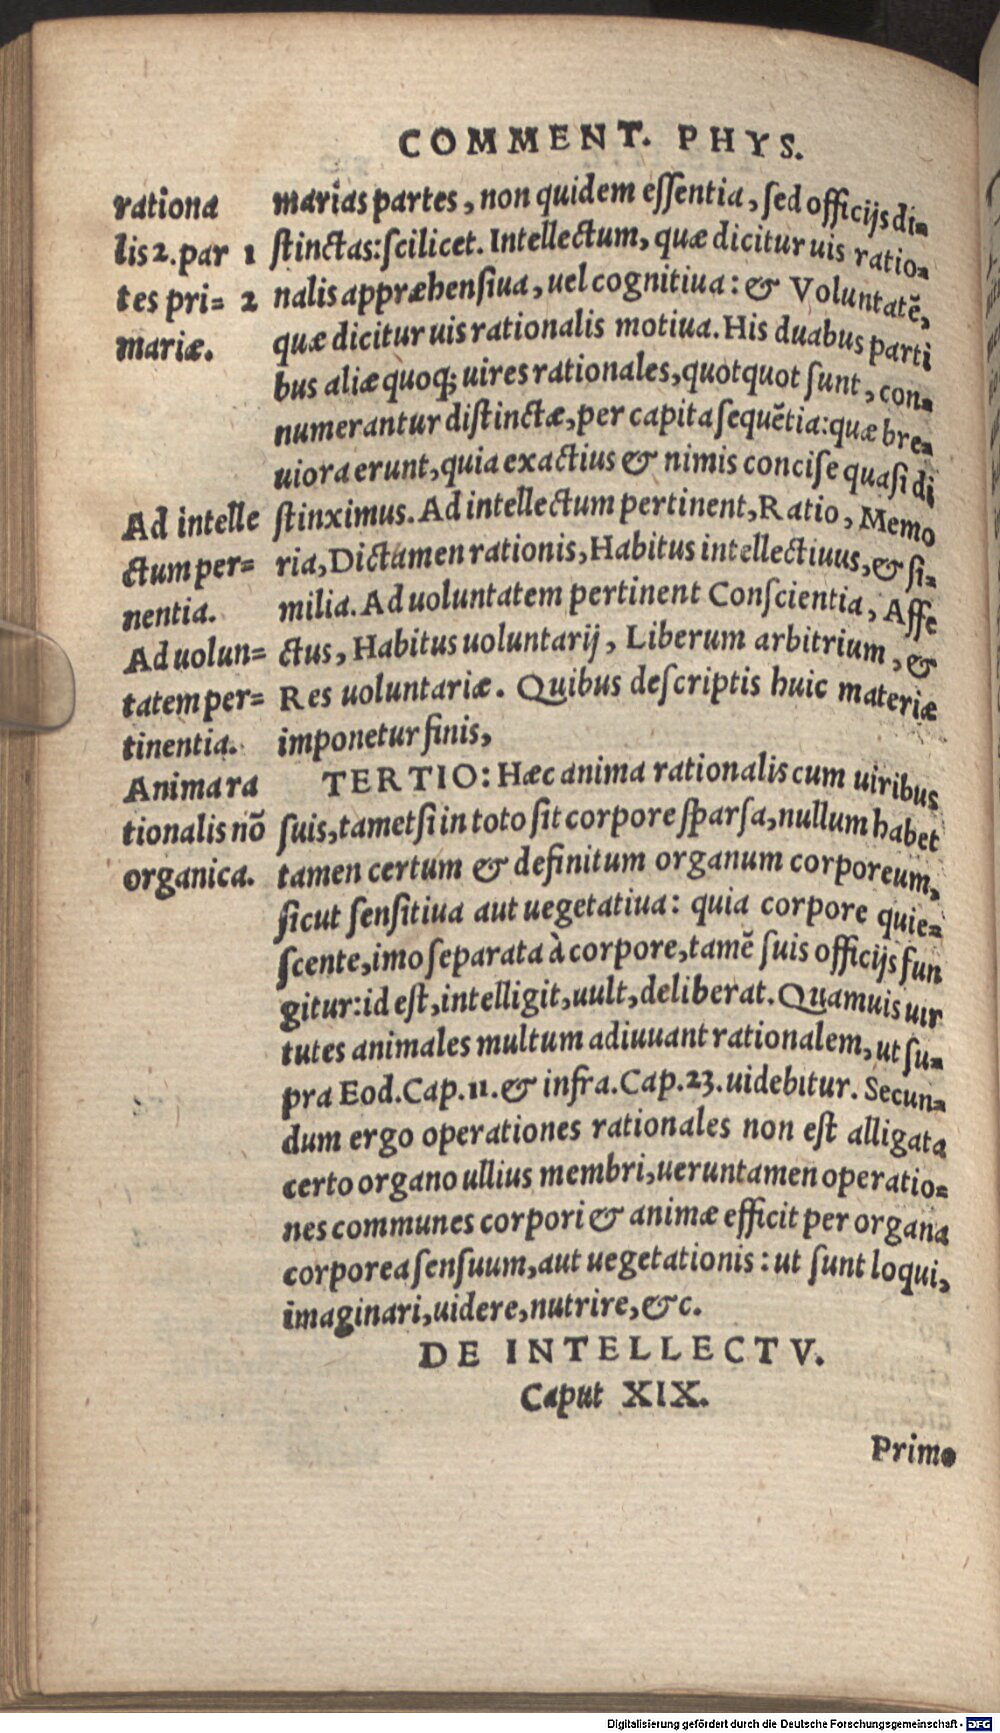 COMMENT. PHYS.
rationa
lis 2. par
tes pri=
mariæ.
1
2
marias partes, non quidem essentia, sed officijs di=
stinctas: scilicet. Intellectum, quæ dicitur uis ratio=
nalis appræhensiua, uel cognitiua: & Voluntatē,
quæ dicitur uis rationalis motiua. His duabus parti
bus aliæ quoq; uires rationales, quotquot sunt, con=
numerantur distinctæ, per capita sequētia: quæ bre=
uiora erunt, quia exactius & nimis concise quasi di
stinximus. Ad intellectum pertinent, Ratio, Memo
ria, Dictamen rationis, Habitus intellectiuus, & si=
milia. Ad uoluntatem pertinent Conscientia, Affe
ctus, Habitus uoluntarij, Liberum arbitrium, &
Res uoluntariæ. Quibus descriptis huic materiæ
imponetur finis,
Ad intelle
ctum per=
nentia.
Ad uolun=
tatem per=
tinentia.
Anima ra
tionalis nō
organica.
TERTIO: Hæc anima rationalis cum uiribus
suis, tametsi in toto sit corpore sparsa, nullum habet
tamen certum & definitum organum corporeum,
sicut sensitiua aut uegetatiua: quia corpore quie=
scente, imo separata à corpore, tamē suis officijs fun
gitur: id est, intelligit, uult, deliberat. Quamuis uir
tutes animales multum adiuuant rationalem, ut su=
pra Eod. Cap. 11. & infra. Cap. 23. uidebitur. Secun=
dum ergo operationes rationales non est alligata
certo organo ullius membri, ueruntamen operatio=
nes communes corpori & animæ efficit per organa
corporea sensuum, aut uegetationis: ut sunt loqui,
imaginari, uidere, nutrire, &c.
DE INTELLECTV.
Caput XIX.
Primo
Digitalisierung gefördert durch die Deutsche Forschungsgemeinschaft - DFG